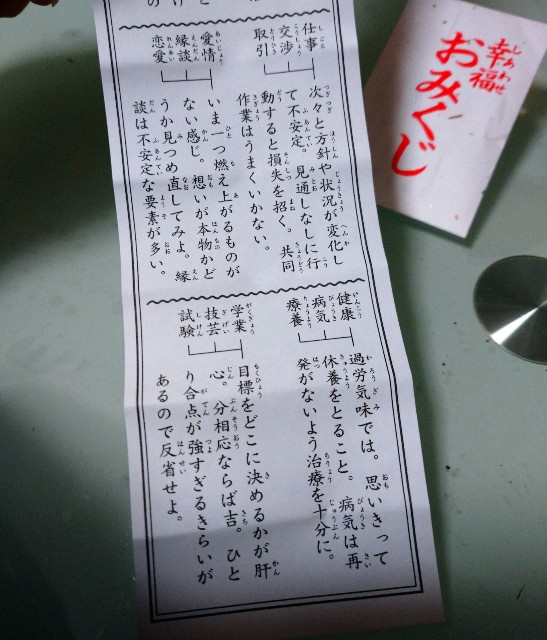 の
と
け
仕事
交渉
取引
次々と方針や状況が変化し
て不安定。見通しなしに行
動すると損失を招く。共同
作業はうまくいかない。
愛情
縁談
恋愛
いま一つ燃え上がるものが
ない感じ。想いが本物かど
うか見つめ直してみよ。縁
談は不安定な要素が多い。
健康
病気
療養
過労気味では。思いきって
休養をとること。病気は再
発がないよう治療を十分に。
学業
技芸
試験
目標をどこに決めるかが肝
心。分相応ならば吉。ひと
り合点が強すぎるきらいが
あるので反省せよ。
幸福
しあわせ
おみくじ